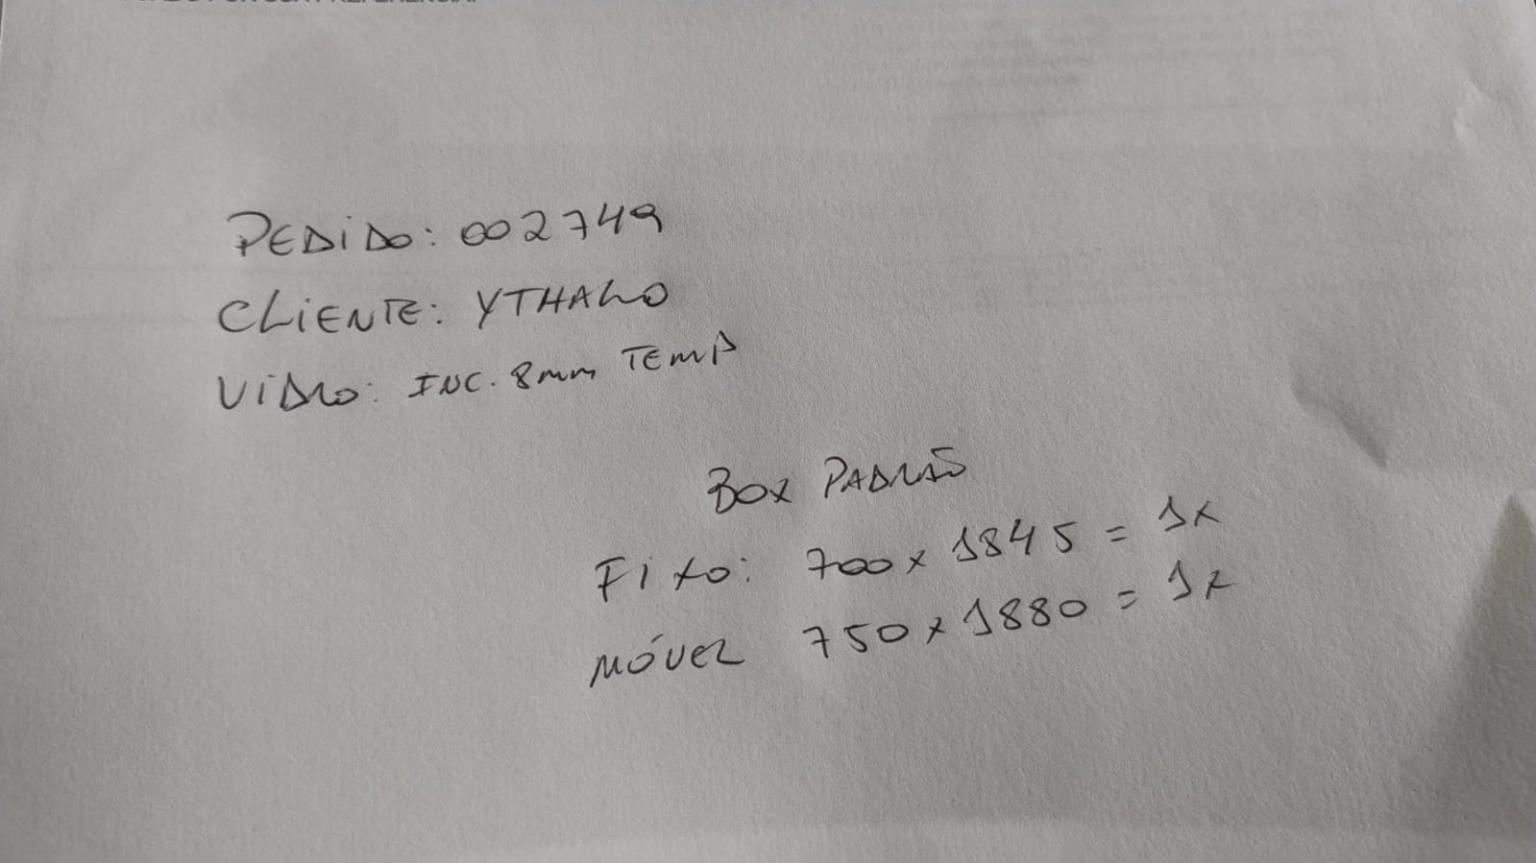 PEDIDO: 002749
CLIENTE: YTHALO
VIDRO: INC. 8mm TEMP
BOX PADRÃO
FIXO: 700 x 1845 = 1x
MÓVEL 750 x 1880 = 1x